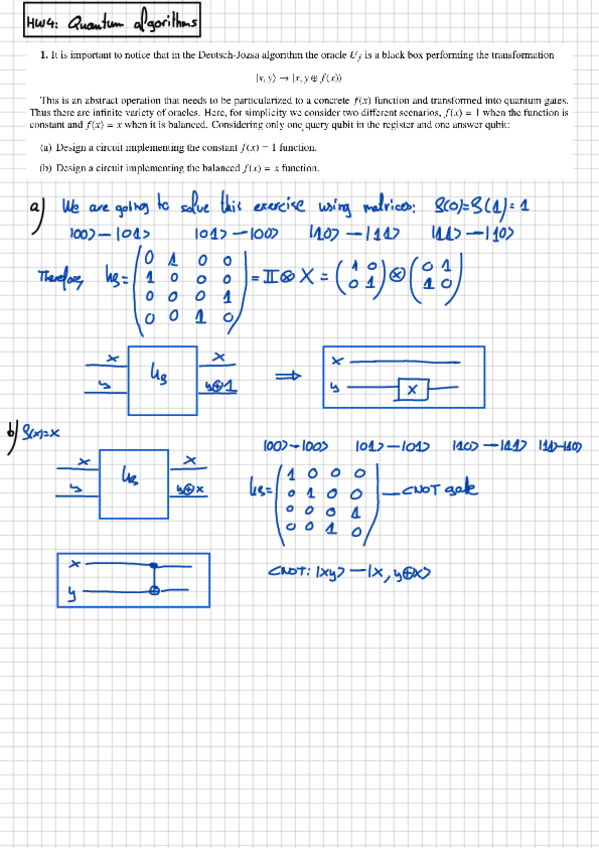 HW4: Quantum algorithms
1. It is important to notice that in the Deutsch-Jozsa algorithm the oracle U_f is a black box performing the transformation
|x, y⟩ → |x, y ⊕ f(x)⟩
This is an abstract operation that needs to be particularized to a concrete f(x) function and transformed into quantum gates.
Thus there are infinite variety of oracles. Here, for simplicity we consider two different scenarios, f(x) = 1 when the function is
constant and f(x) = x when it is balanced. Considering only one query qubit in the register and one answer qubit:
(a) Design a circuit implementing the constant f(x) = 1 function.
(b) Design a circuit implementing the balanced f(x) = x function.
a) We are going to solve this exercise using matrices: f(0)=f(1)=1
|00> — |01> |01> — |00> |10> — |11> |11> — |10>
Therefore, U_f = (0 1 0 0
1 0 0 0
0 0 0 1
0 0 1 0) = II ⊗ X = (1 0
0 1) ⊗ (0 1
1 0)
x U_f x ⇒ x
y y⊕1 y X
b) f(x)=x
|00> — |00> |01> — |01> |10> — |11> |11> — |10>
x U_f x
y y⊕x
U_f = (1 0 0 0
0 1 0 0
0 0 0 1
0 0 1 0) — CNOT gate
x
y
CNOT: |xy> — |x, y⊕x>